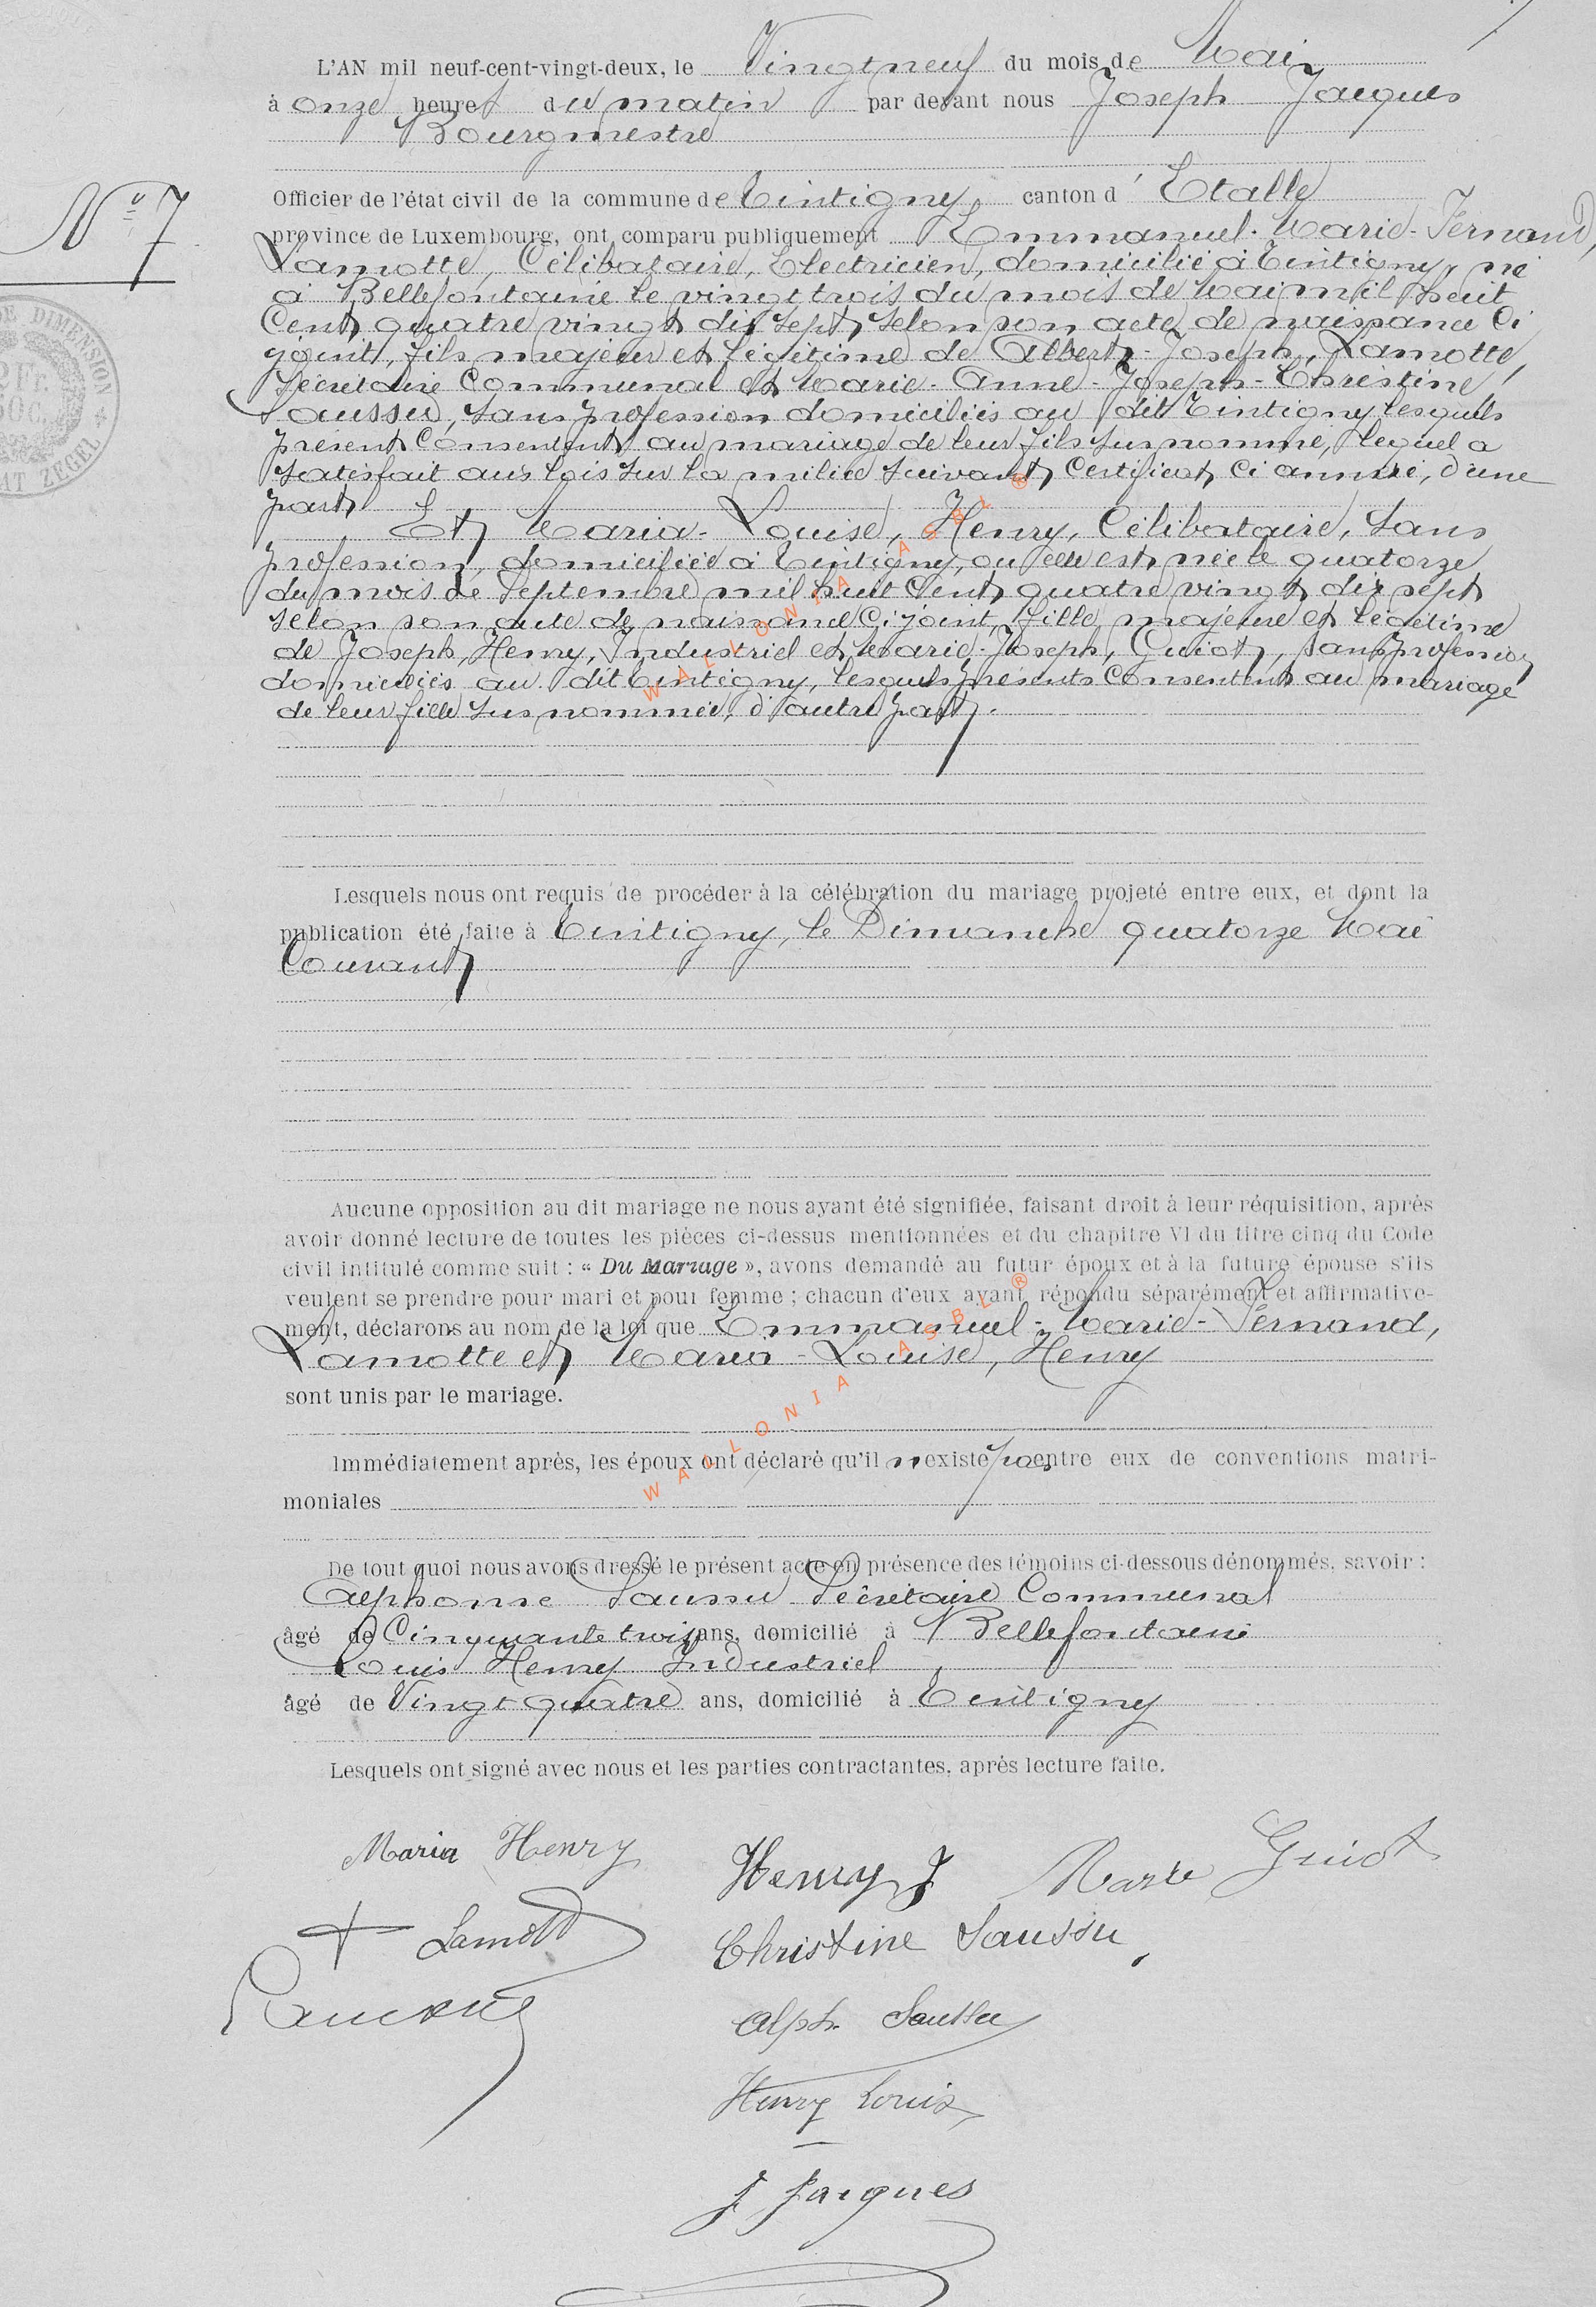 L'AN mil neuf-cent-vingt-deux, le Vingt neuf du mois de Mai
à onze heures du matin par devant nous Joseph Jacques
Bourgmestre
N° 7
Officier de l'état civil de la commune de Tintigny, canton d'Etalle
province de Luxembourg, ont comparu publiquement Emmanuel-Marie-Fernand,
Lamotte, Célibataire, Electricien, domicilié à Tintigny, né
à Bellefontaine le vingt trois du mois de Mai mil huit
Cent quatre vingt dix sept selon son acte de naissance Ci
joint, fils majeur et légitime de Albert-Joseph, Lamotte,
Secrétaire Communal et Marie-Anne-Joseph-Christine
Saussu, sans profession domiciliés au dit Tintigny lesquels
présent Consentent au mariage de leur fils sus nommé, lequel a
satisfait aux lois sur la milice suivant Certificat Ci annexé, d'une
part
Et Maria-Louise, Henry, Célibataire, Sans
profession, domiciliée à Tintigny, ou elle est née le quatorze
du mois de Septembre mil huit Cent quatre vingt dix sept
selon son acte de naissance Ci joint, fille majeure et légitime
de Joseph, Henry, Industriel et Marie-Joseph, Guiot, sans profession
domiciliés au dit Tintigny, lesquels présents Consentent au mariage
de leur fille sus nommée, d'autre part.
Lesquels nous ont requis de procéder à la célébration du mariage projeté entre eux, et dont la
publication été faite à Tintigny, le Dimanche quatorze Mai
Courant
Aucune opposition au dit mariage ne nous ayant été signifiée, faisant droit à leur réquisition, après
avoir donné lecture de toutes les pièces ci-dessus mentionnées et du chapitre VI du titre cinq du Code
civil intitulé comme suit : « Du Mariage », avons demandé au futur époux et à la future épouse s'ils
veulent se prendre pour mari et pour femme ; chacun d'eux ayant répondu séparément et affirmative-
ment, déclarons au nom de la loi que Emmanuel-Marie-Fernand,
Lamotte et Maria-Louise, Henry
sont unis par le mariage.
Immédiatement après, les époux ont déclaré qu'il n'existe pas entre eux de conventions matri-
moniales
De tout quoi nous avons dressé le présent acte en présence des témoins ci-dessous dénommés, savoir :
Alphonse Saussu Secrétaire Communal
âgé de Cinquante trois ans, domicilié à Bellefontaine
Louis Henry Industriel
âgé de Vingt quatre ans, domicilié à Tintigny
Lesquels ont signé avec nous et les parties contractantes, après lecture faite.
Maria Henry
Henry J
Marie Guiot
Lamotte
Christine Saussu
Alph. Saussu
Henry Louis
J Jacques
DE DIMENSION
2 Fr.
50 C.
ZEGEL
WALLONIA ASBL ®
WALLONIA ASBL ®